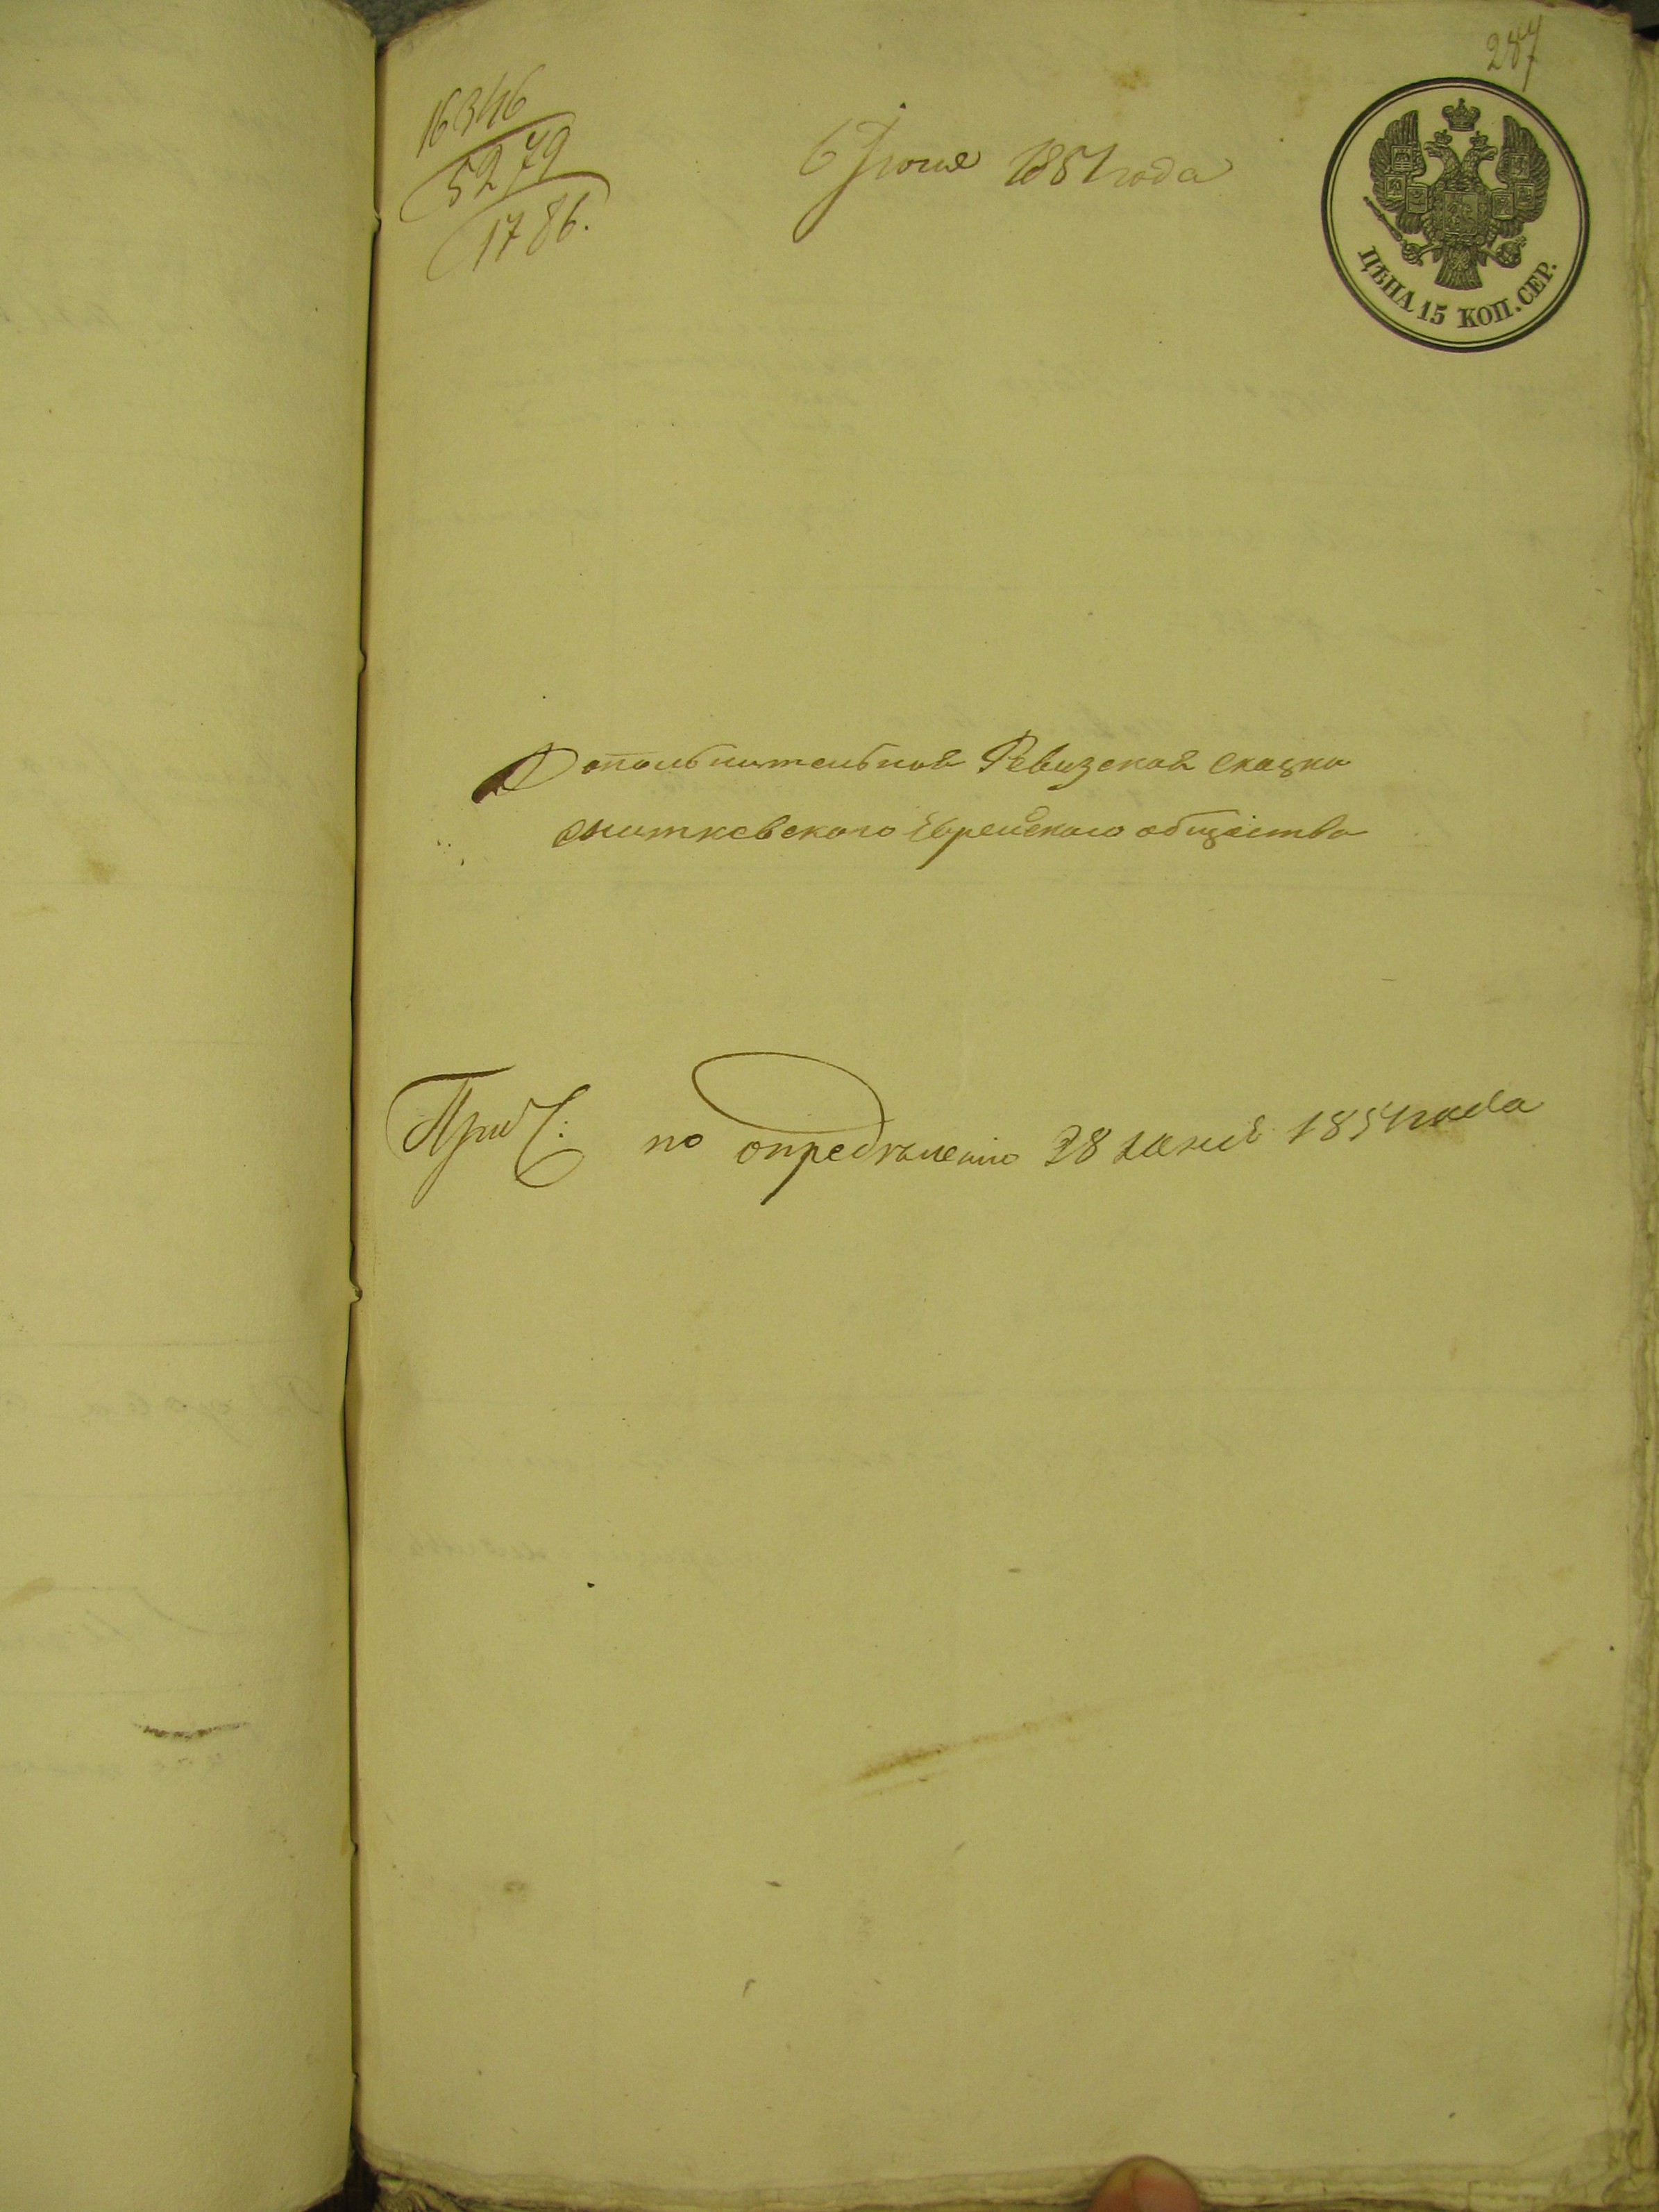 287
16346
5279
1786.
6 Іюня 1851 года
ЦѢНА 15 КОП. СЕР.
Дополнительная Ревизская сказка
Снитковского Еврейского общества
по определению 28 1851 года